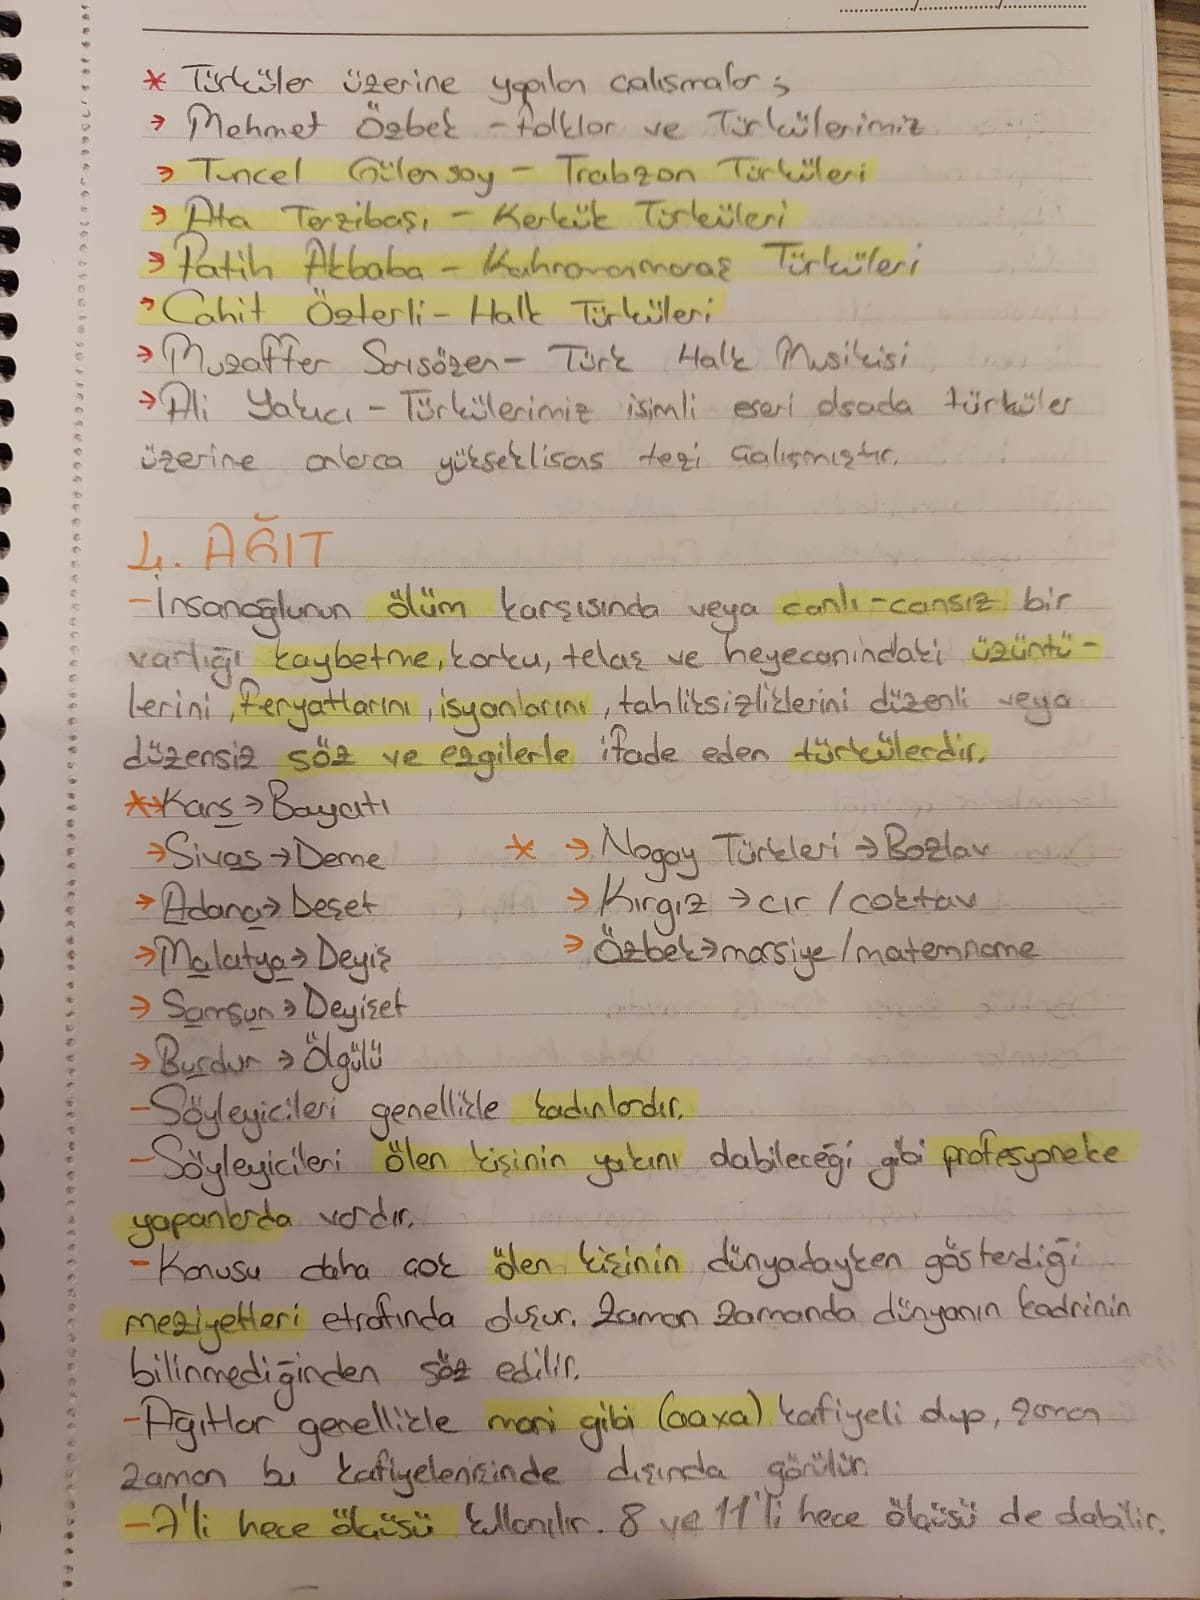 * Türküler üzerine yapılan çalışmalar ;
→ Mehmet Özbek - Folklor ve Türkülerimiz
→ Tuncel Gülensoy - Trabzon Türküleri
→ Ata Terzibaşı - Kerkük Türküleri
→ Fatih Akbaba - Kahramanmaraş Türküleri
→ Cahit Özterli - Halk Türküleri
→ Muzaffer Sarısözen - Türk Halk Musikisi
→ Ali Yakıcı - Türkülerimiz isimli eseri olsada türküler
üzerine onlarca yükseklisas tezi çalışmıştır.
4. AĞIT
- İnsanoğlunun ölüm karşısında veya canlı-cansız bir
varlığı kaybetme, korku, telaş ve heyecanındaki üzüntü-
lerini, feryatlarını, isyanlarını, tahliksizliklerini düzenli veya
düzensiz söz ve ezgilerle ifade eden türkülerdir.
*→ Kars → Bayatı
→ Sivas → Deme
* → Nogay Türkleri → Bozlav
→ Adana → Deşet
→ Kırgız → cır / coktav
→ Malatya → Deyiş
→ Özbek → marsiye / matemname
→ Samsun → Deyişet
→ Burdur → Ölgülü
- Söyleyicileri genellikle kadınlardır.
- Söyleyicileri ölen kişinin yakını olabileceği gibi profesyonelce
yapanlarda vardır.
- Konusu daha çok ölen kişinin dünyadayken gösterdiği
meziyetleri etrafında oluşur. Zaman zamanda dünyanın kadrinin
bilinmediğinden söz edilir.
- Ağıtlar genellikle mani gibi (aaxa) kafiyeli olup, zaman
zaman bu kafiyelenişinde dışında görülür.
- 7'li hece ölçüsü kullanılır. 8 ve 11'li hece ölçüsü de olabilir.